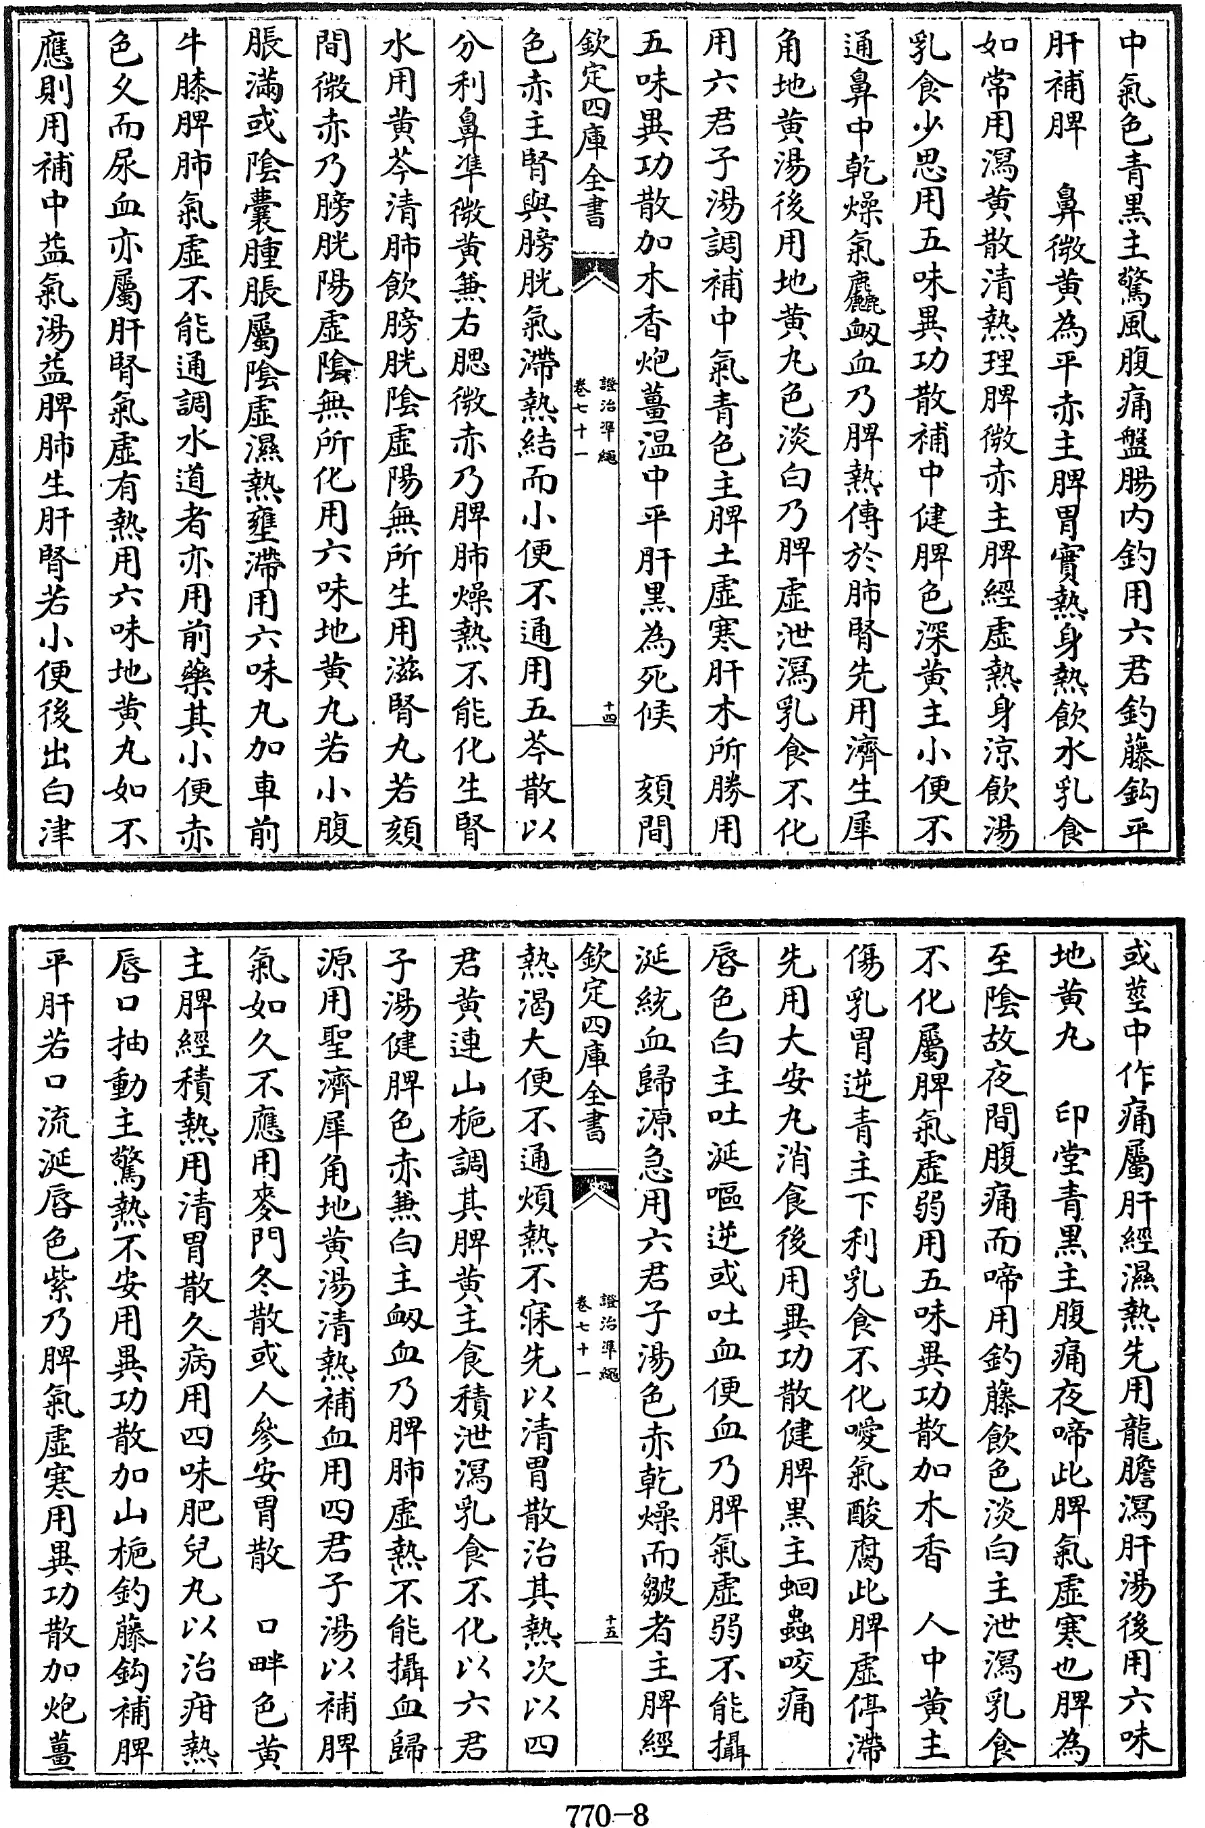 中氣色青黑主驚風腹痛盤腸内釣用六君釣藤鈎平
肝補脾　鼻微黄為平赤主脾胃實熱身熱飲水乳食
如常用瀉黄散清熱理脾微赤主脾經虛熱身涼飲湯
乳食少思用五味異功散補中健脾色深黄主小便不
通鼻中乾燥氣麤衂血乃脾熱傳於肺腎先用濟生犀
角地黄湯後用地黄丸色淡白乃脾虛泄瀉乳食不化
用六君子湯調補中氣青色主脾土虛寒肝木所勝用
五味異功散加木香炮薑温中平肝黑為死候　頦間
欽定四庫全書
證治準繩
卷七十一
十四
色赤主腎與膀胱氣滯熱結而小便不通用五苓散以
分利鼻準微黄兼右腮微赤乃脾肺燥熱不能化生腎
水用黄芩清肺飲膀胱陰虛陽無所生用滋腎丸若頦
間微赤乃膀胱陽虛陰無所化用六味地黄丸若小腹
脹滿或陰囊腫脹屬陰虛濕熱壅滯用六味丸加車前
牛膝脾肺氣虛不能通調水道者亦用前藥其小便赤
色久而尿血亦屬肝腎氣虛有熱用六味地黄丸如不
應則用補中益氣湯益脾肺生肝腎若小便後出白津
或莖中作痛屬肝經濕熱先用龍膽瀉肝湯後用六味
地黄丸　印堂青黑主腹痛夜啼此脾氣虛寒也脾為
至陰故夜間腹痛而啼用釣藤飲色淡白主泄瀉乳食
不化屬脾氣虛弱用五味異功散加木香　人中黄主
傷乳胃逆青主下利乳食不化噯氣酸腐此脾虛停滯
先用大安丸消食後用異功散健脾黑主蛔蟲咬痛
唇色白主吐涎嘔逆或吐血便血乃脾氣虛弱不能攝
涎統血歸源急用六君子湯色赤乾燥而皺者主脾經
欽定四庫全書
證治準繩
卷七十一
十五
熱渴大便不通煩熱不寐先以清胃散治其熱次以四
君黄連山梔調其脾黄主食積泄瀉乳食不化以六君
子湯健脾色赤兼白主衂血乃脾肺虛熱不能攝血歸
源用聖濟犀角地黄湯清熱補血用四君子湯以補脾
氣如久不應用麥門冬散或人參安胃散　口畔色黄
主脾經積熱用清胃散久病用四味肥兒丸以治疳熱
唇口抽動主驚熱不安用異功散加山梔釣藤鈎補脾
平肝若口流涎唇色紫乃脾氣虛寒用異功散加炮薑
770-8